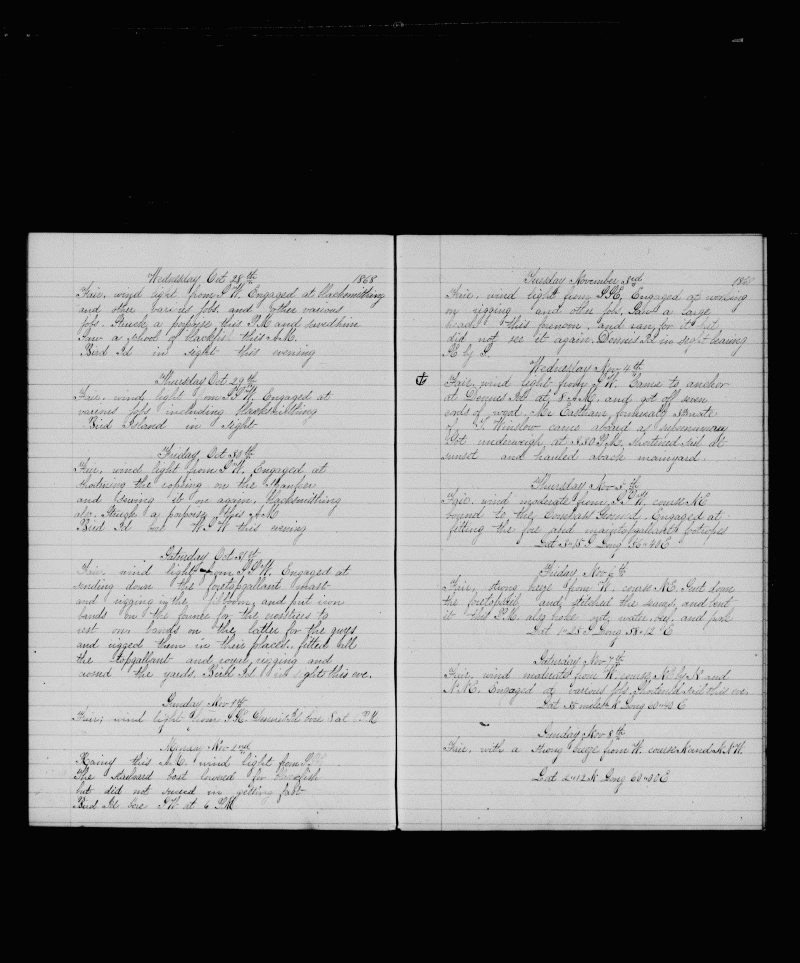 Wednesday Oct 28th 1868
Fair, wind light from S.W. Engaged at blacksmithing
and other various jobs. and other various
jobs. Struck a porpoise this P.M and saved him
Saw a school of blackfish this A.M.
Bird Isd in sight this evening
Thursday Oct 29th
Fair, wind light from S.S.W. Engaged at
various jobs including blacksmithing
Bird Island in sight
Friday Oct 30th
Fair, wind light from S.W. Engaged at
shortening the coping on the
and sewing it on again, blacksmithing
also. Struck a porpoise this A.M
Bird Isd bore W.S.W this evening
Saturday Oct 31st
Fair, wind light from S.S.W. Engaged at
sending down the foretopgallant mast
and rigging in the jibboom, and put iron
bands on the former for the crosstrees to
rest on bands on the latter for the guys
and rigged them in their places. fitted all
the topgallant and royal rigging and
crossed the yards. Bird Isd in sight this eve.
Sunday Nov 1st
Fair, wind light from S.E. Dennis Isd bore S at P.M
Monday Nov 2nd
Rainy this A.M. wind light from
The starboard boat lowered for blackfish
but did not succeed in getting fast
Bird Isd bore S.W. at 6 P.M
Tuesday November 3rd 1868
Fair, wind light from S.S.E, Engaged at working
on rigging and other jobs. Saw a large
this forenoon, and ran for it but
did not see it again. Dennis Isd in sight bearing
S. by S.
Wednesday Nov 4th
Fair, wind light from S.W. Came to anchor
at Dennis Isd at 8 A.M. and got off seven
cords of wood. Mr Eastham, formerly 3d mate
of J. Winslow came aboard as supernumary
Got underweigh at 3.30 P.M. shortened sail at
sunset and hauled aback mainyard.
Thursday Nov 5th
Fair, wind moderate from S.S.W. course NE
bound to the Comstass Ground. Engaged at
fitting the fore and maintopgallant footropes
Lat 3-15 S Long 56-40 E
Friday Nov 6th
Fair, strong breeze from W. course NE. Sent down
the foretopsail and stitched the seams, and bent
it this P.M. also broke out, water, beef, and pork
Lat 1-28 S Long 58-12 E
Saturday Nov 7th
Fair, wind moderate from W. course N.E by N and
N.N.E. Engaged at various jobs. Shortened sail this eve.
Lat 35 miles N Long 60-40 E
Sunday Nov 8th
Fair, with a strong breeze from W. course N and N.N.W.
Lat 2-12 N Long 60-30 E